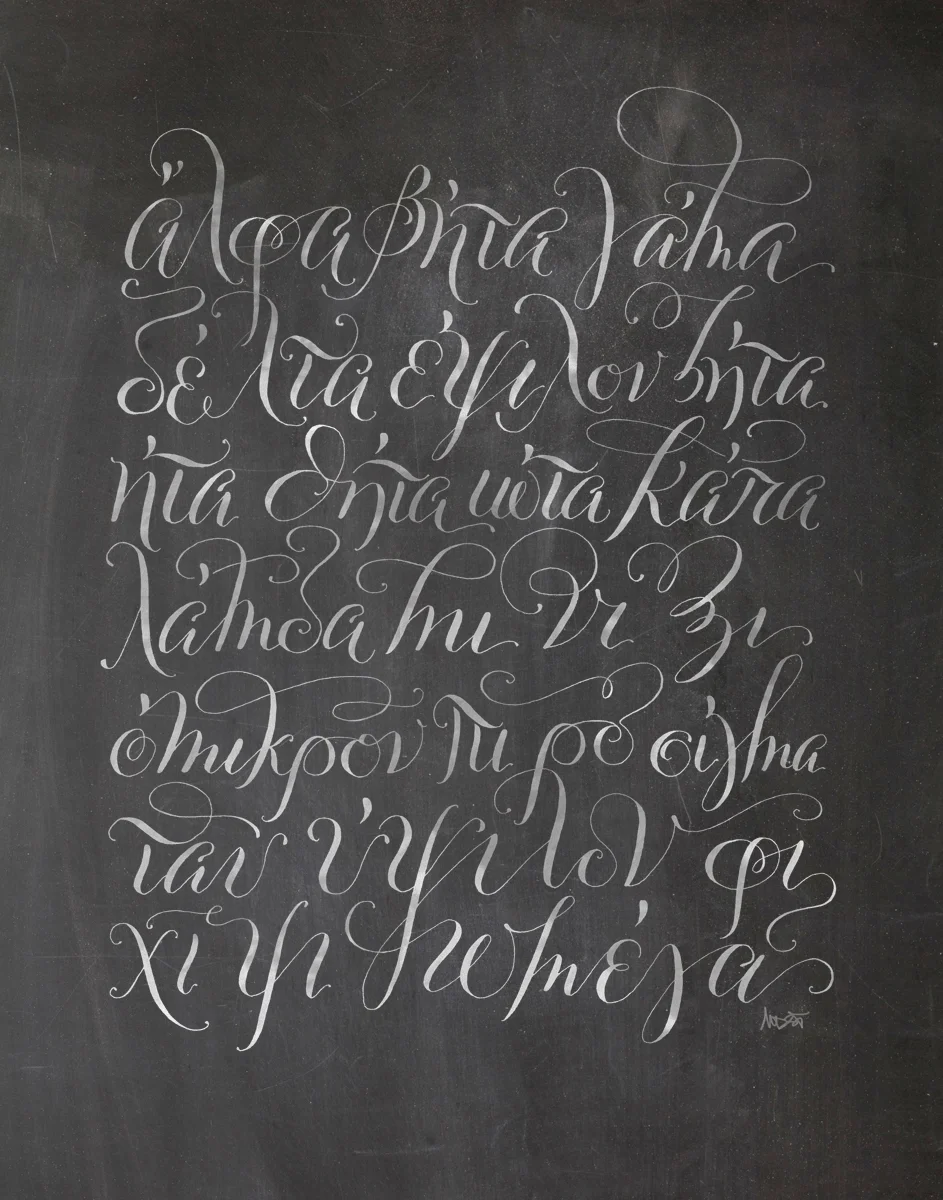 ἄλφα βήτα γάμα
δέλτα ἔψιλον ζήτα
ἤτα θήτα ιώτα κάπα
λάμδα μι νι ξι
ὄμικρον πι ρο σίγμα
ταυ ύψιλον φι
χι ψι ωμέγα